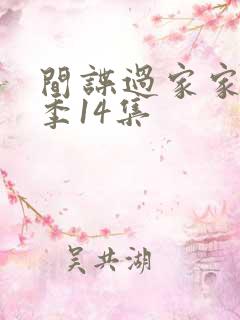 間諜過家家
季14集
吴共湖